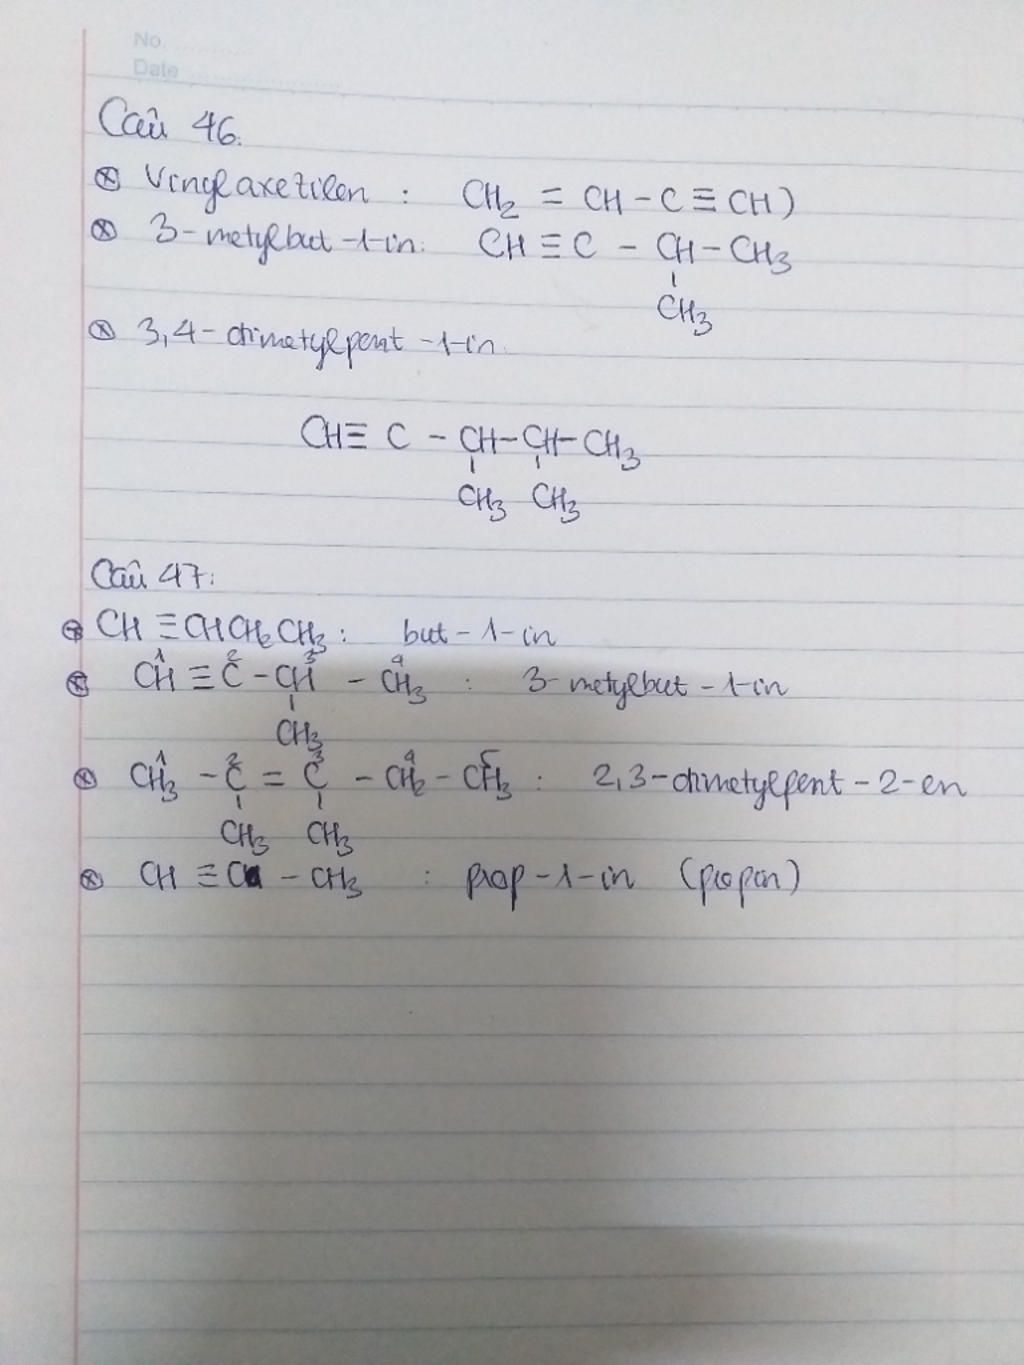 No.
Date
Câu 46.
⊗ Vinylaxetilen : CH₂ = CH - C ≡ CH)
⊗ 3-metylbut-1-in: CH ≡ C - CH - CH₃
CH₃
⊗ 3,4-đimetylpent-1-in.
CH ≡ C - CH - CH - CH₃
CH₃ CH₃
Câu 47:
⊗ CH ≡ CHCH₂CH₃ : but-1-in
1 2 3 4
⊗ CH ≡ C - CH - CH₃ : 3-metylbut-1-in
CH₃
1 2 3 4 5
⊗ CH₃ - C = C - CH₂ - CH₃ : 2,3-đimetylpent-2-en
CH₃ CH₃
⊗ CH ≡ C - CH₃ : prop-1-in (propin)